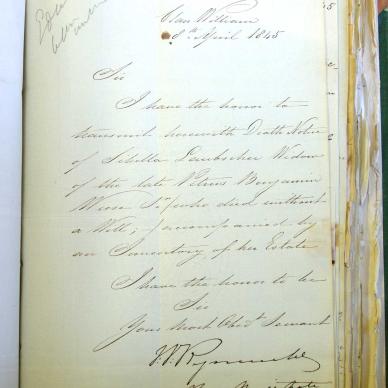 Clan William
8th April 1845
Sir
I have the honor to
transmit herewith Death Notice
of Sibella Lambrecher Widow
of the late Petrus Benjamin
Wiese Sr who died without
a Will; accompanied by
an Inventory of her Estate
I have the honor to be
Sir
Your Most Obedt Servant